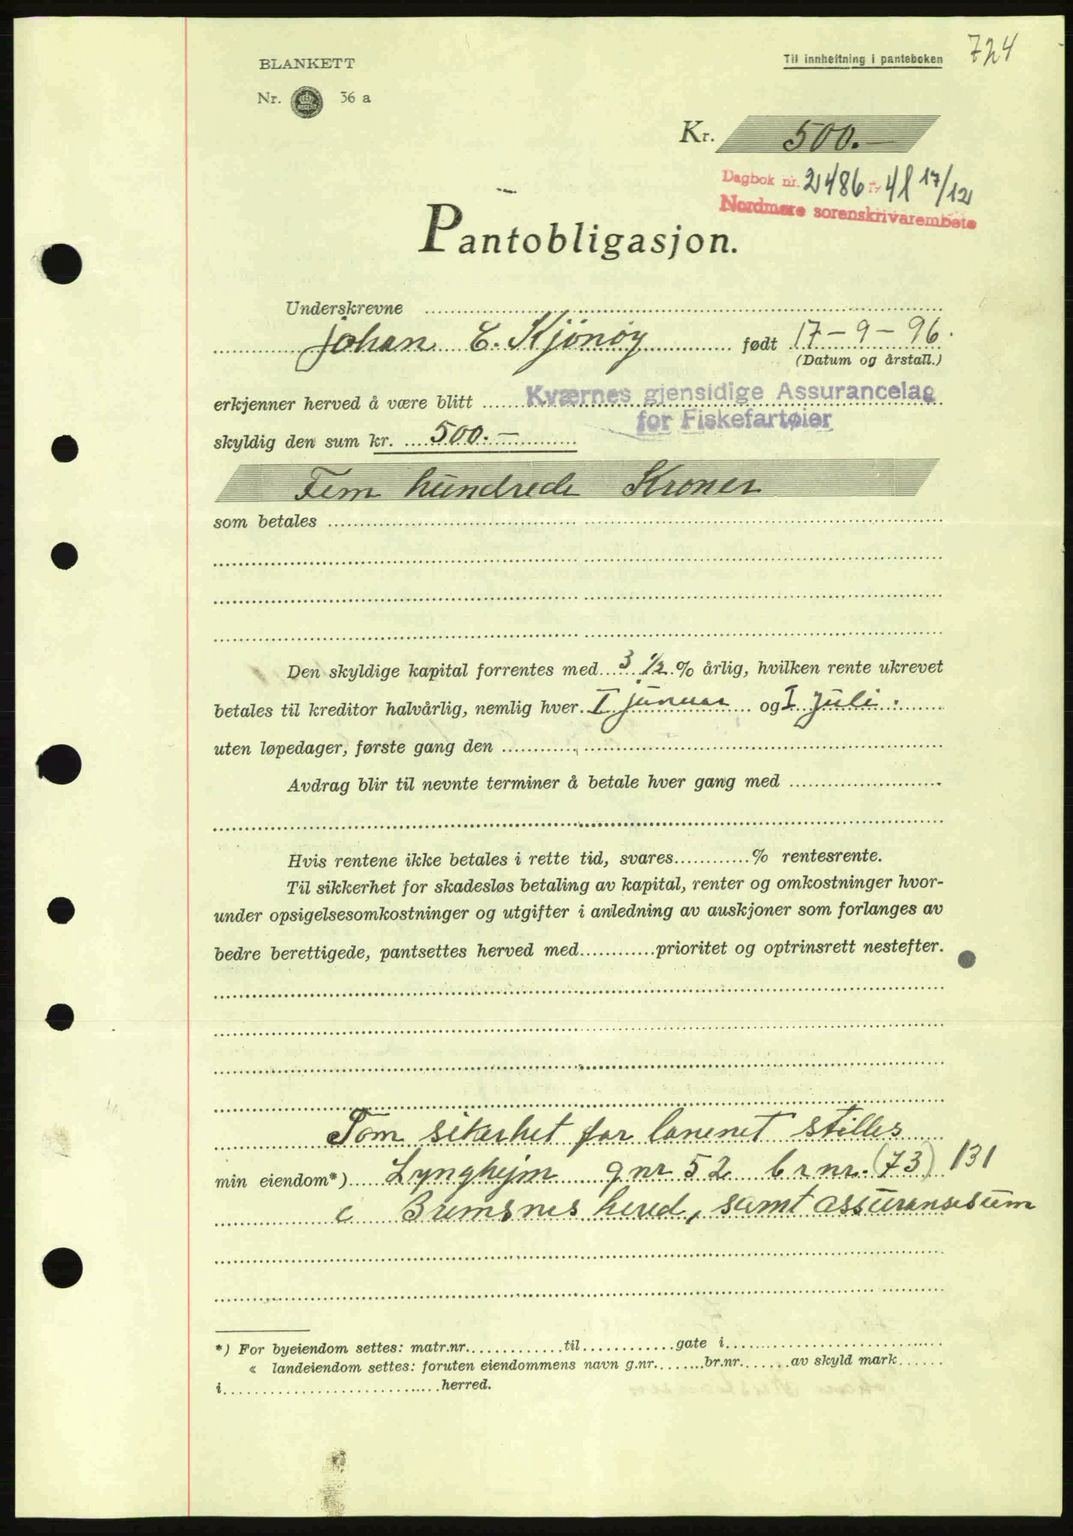 724
Til innheftning i panteboken
BLANKETT
Nr. 36 a
Kr. 500.-
Dagbok nr. 2486 - 41 17/12
Nordmøre sorenskrivarembete
Pantobligasjon.
Underskrevne
Johan E. Kjönöy født 17-9-96.
(Datum og årstall.)
erkjenner herved å være blitt Kværnes gjensidige Assurancelag
for Fiskefartøier
skyldig den sum kr. 500.-
Fem hundrede Kroner
som betales
Den skyldige kapital forrentes med 3 1/2 % årlig, hvilken rente ukrevet
betales til kreditor halvårlig, nemlig hver I januar og I juli.
uten løpedager, første gang den
Avdrag blir til nevnte terminer å betale hver gang med
Hvis rentene ikke betales i rette tid, svares % rentesrente.
Til sikkerhet for skadesløs betaling av kapital, renter og omkostninger hvor-
under opsigelsesomkostninger og utgifter i anledning av auskjoner som forlanges av
bedre berettigede, pantsettes herved med prioritet og optrinsrett nestefter.
Som sikerhet for lånenet stilles
min eiendom*) Lynghejm gnr. 52 br nr. (73) 131
i Bremsnes hered, samt assuransesum
*) For byeiendom settes: matr.nr. til gate i
« landeiendom settes: foruten eiendommens navn g.nr. br.nr. av skyld mark
i herred.